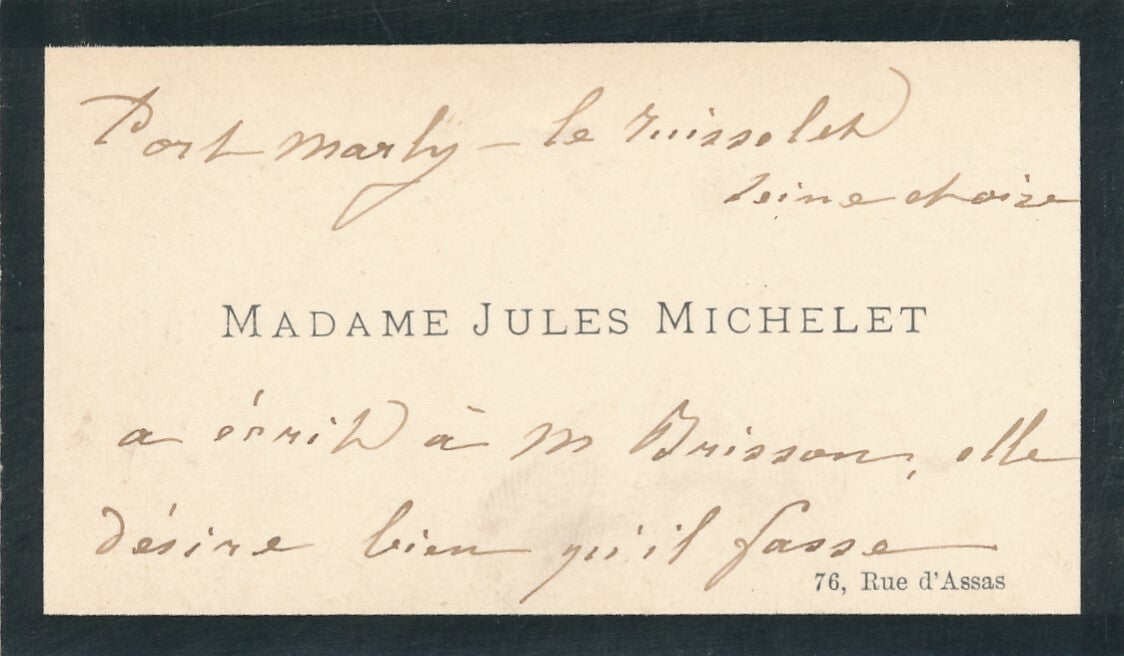 Port Marly – le ruissolet
Seine et oise
MADAME JULES MICHELET
a écrit à M Brisson, elle
désire bien qu'il fasse
76, Rue d'Assas